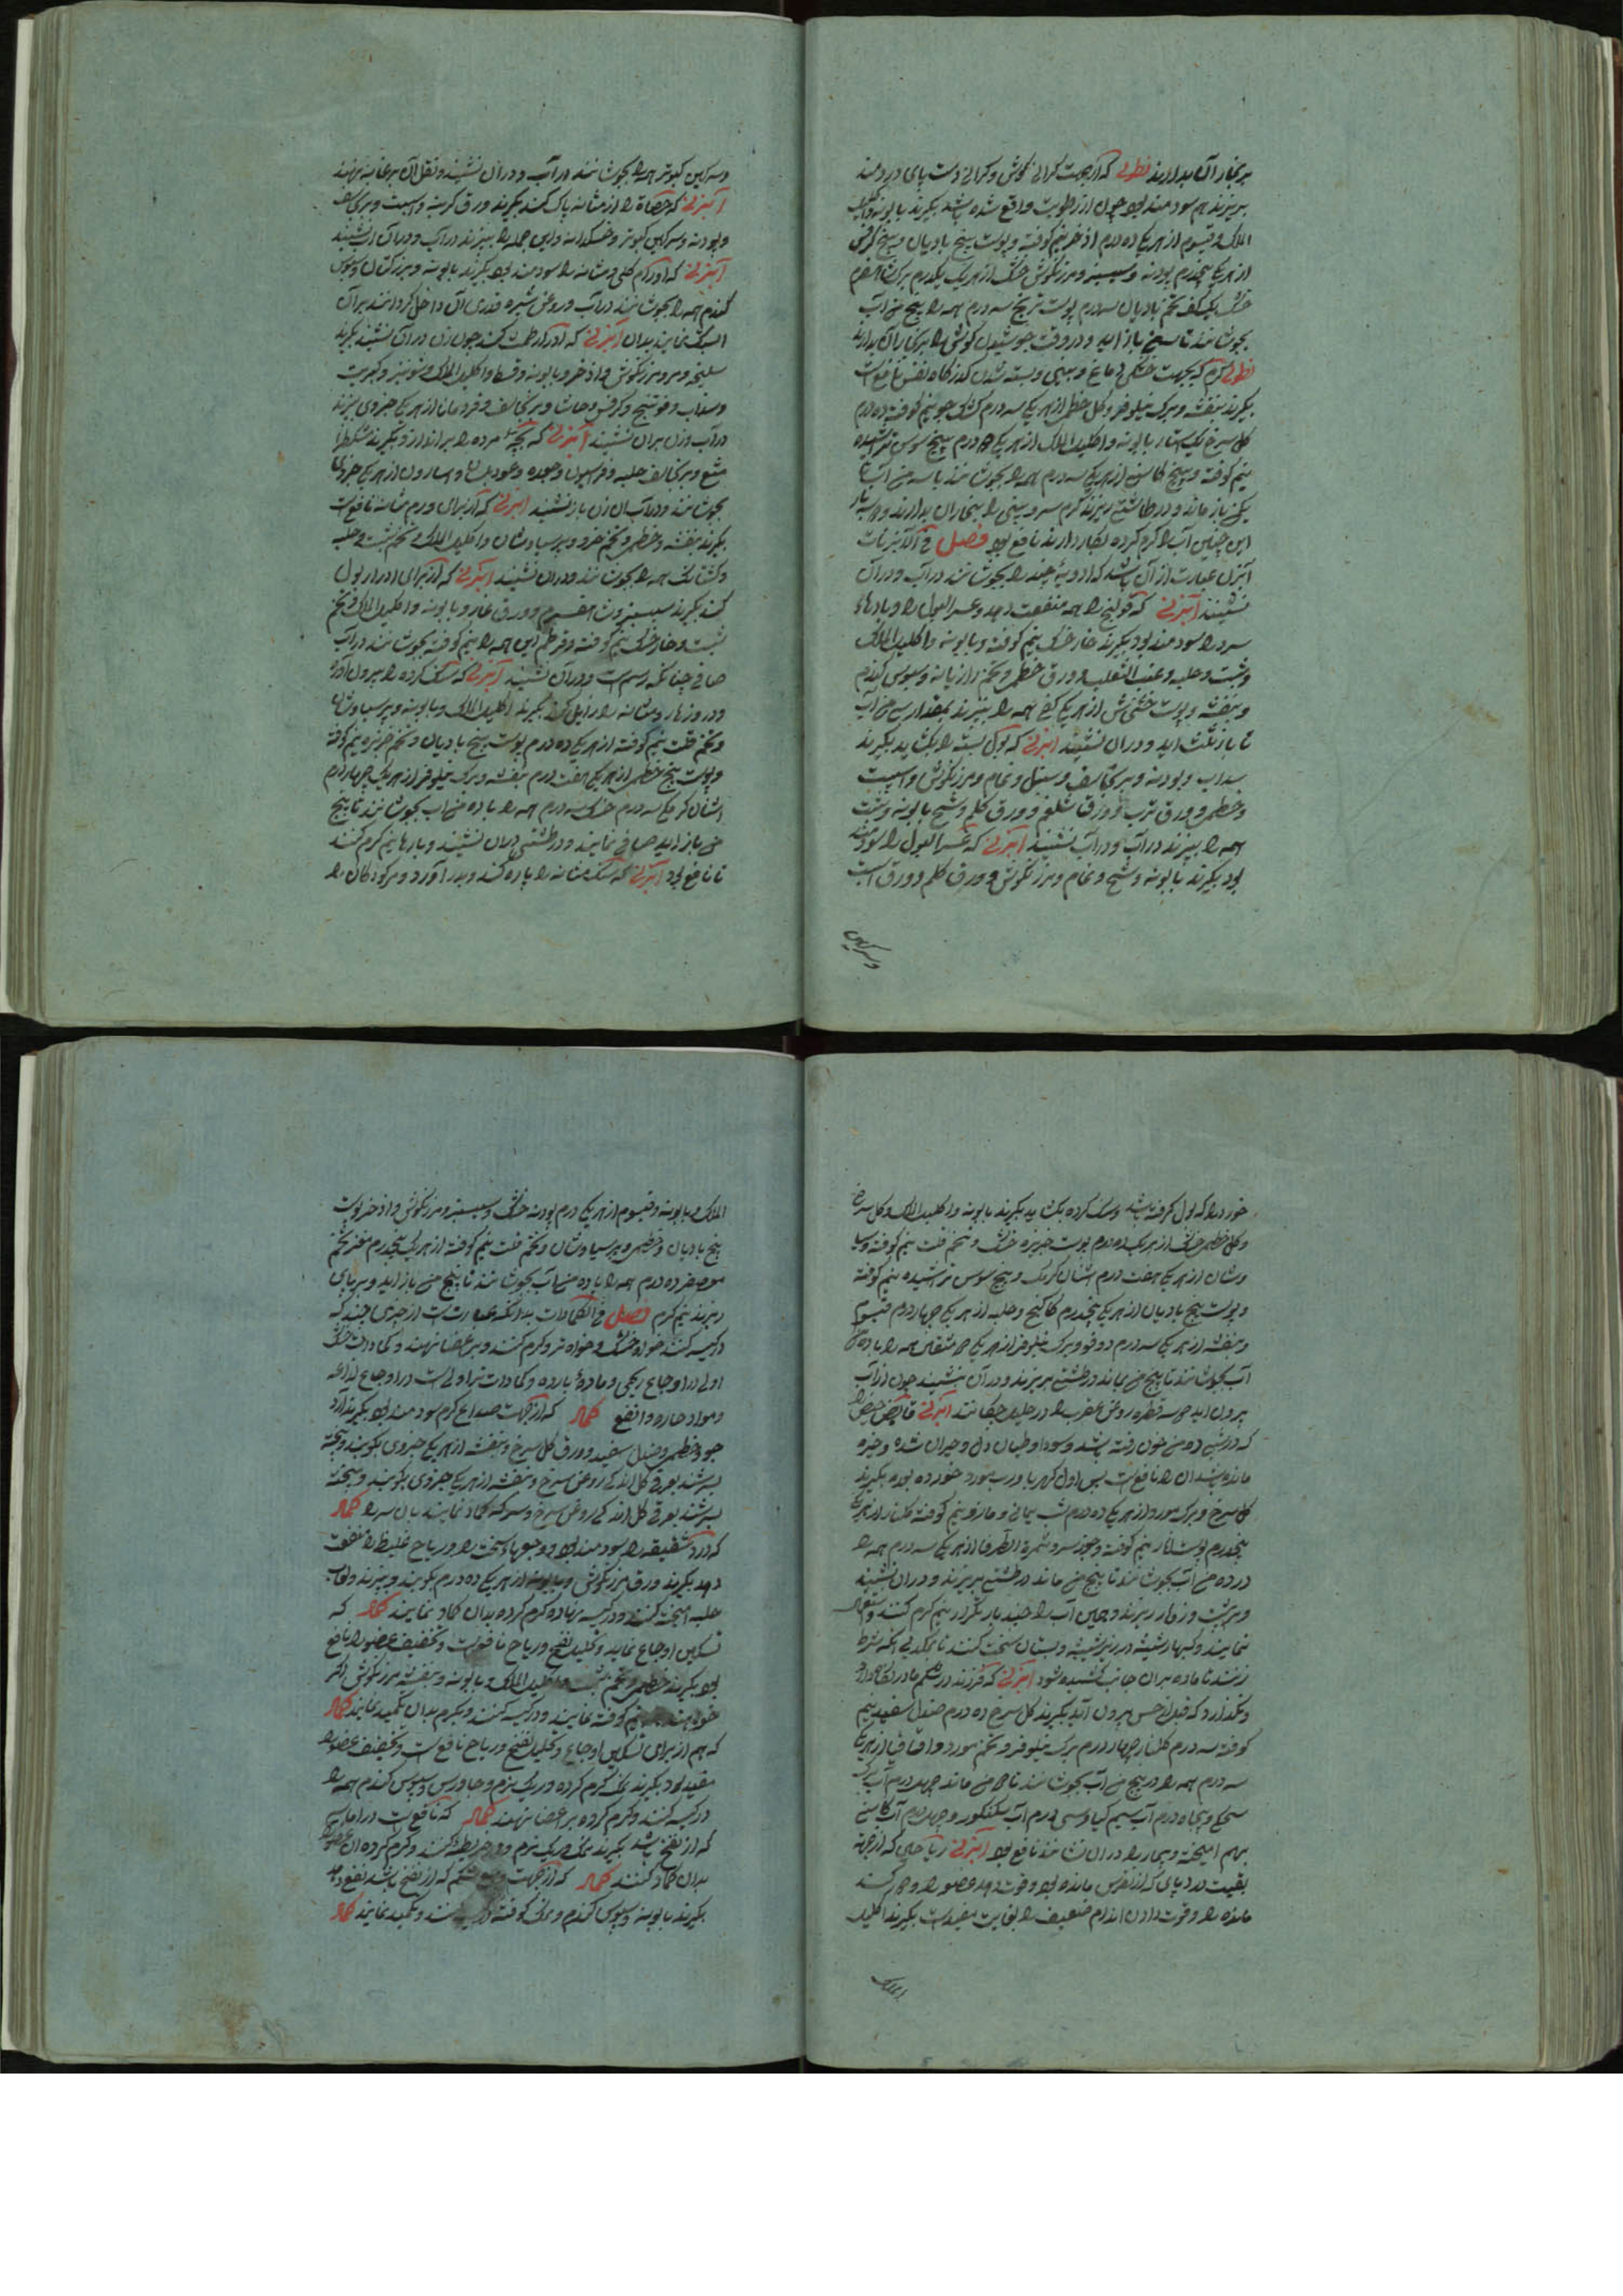 بر بخار آن بدارند نطولی که از جهت کرانی کوش و کرانی دست پای در دمند
بریزند هم سودمند بود چون از رطوبت واقع شده باشد بکیرند بابونه و اکلیل
الملک و قیسوم از هر یک ده درم اذخر نیم کوفته و پوست بیخ بادیان و بیخ کرفس
از هر یک پنجدرم پودنه و سیسنبر و مرزنکوش خشک از هر یک یکدرم برک
خشک یک کف تخم بادیان سه درم پوست ترنج سه درم همه را به پنج من آب
بجوشانند تا بسه من باز آید و در وقت جوشیدن کوش را بر بخار آن بدارند
نطولی کرم که بجهت خشکی دماغ و بینی و بسته شدن کذرکاه نفس نافع است
بکیرند بنفشه و برک نیلوفر و کل خطمی از هر یک سه درم کشک جو نیم کوفته ده درم
کل سرخ بابونه و اکلیل الملک از هر یک درم بیخ سوس تراشیده
نیم کوفته و بیخ کاسنی از هر یک سه درم همه را بجوشانند با سه من آب تا
یک من باز ماند و در طاشتی ریزند کرم سر و بینی را ببخار آن بدارند و هر بار
این چنین آب را کرم کرده بکار دارند نافع بود فصل فی الآبزنات
آبزن عبارت از آن باشد که ادویهٔ چند را بجوشانند در آب و در آن
نشینند آبزنی که قولنج را همه منفعت دهد و عسر البول را و بادهای
سرد را سودمند بود بکیرند خار خشک نیم کوفته و بابونه و اکلیل الملک
و شبت و حلبه و عنب الثعلب و ورق خطمی و تخم رازیانه و سبوس کندم
و بنفشه و پوست خشخاش از هر یک کفی همه را بپزند بمقدار سی من آب
تا باز بثلث آید و در آن نشینند آبزنی که بول بسته را بکشاید بکیرند
سداب و پودنه و برنجاسف و سنبل و نمام و مرزنکوش و اسپست
و خطمی و ورق ترب و ورق شلغم و ورق کلم و شیح بابونه و شبت
همه را بپزند در آب و در آب نشینند آبزنی که عسر البول را سودمند
بود بکیرند بابونه و شیح و نمام و مرزنکوش و ورق کلم و ورق اسپست
و سرکین
و سرکین کبوتر همه را بجوشانند در آب و در آن نشینند و ثقل آن بر عانه نهند
آبزنی که حصاة را از مثانه پاک کند بکیرند ورق کرنب و اسپست و
و پودنه و سرکین کبوتر و خسکدانه و این جمله را بپزند در آب و در آن آب نشینند
آبزنی که اورام کلی و مثانه را سودمند بود بکیرند بابونه و بزر کتان و سبوس
کندم همه را بجوشانند در آب و روغن شیره قدری در آن داخل کردانند بر آن
بدان آبزنی که ادرار طمث کند چون زن در آن نشیند بکیرند
سلیخه و مر و مرزنکوش و اذخر و بابونه و قسط و اکلیل الملک و شونیز و
و سداب و فوتنج و کرفس و حاشا و برنجاسف و قردمانا از هر یک جزوی بپزند
در آب و زن بر آن نشیند آبزنی که بچهٔ مرده را بر اندازد بکیرند
و برنجاسف حلبه و فراسیون و جعده و عود بلسان و اسارون از هر یک جزوی
بجوشانند و در آب آن زن باز نشیند آبزنی که از برای ورم مثانه نافع است
بکیرند بنفشه و خطمی و تخم مرو و پرسیاوشان و اکلیل الملک و تخم شبت و حلبه
همه را بجوشانند و در آن نشینند آبزنی که از برای ادرار بول
کند بکیرند سیسنبر و ورق غار و بابونه و اکلیل الملک و تخم
شبت و خار خشک نیم کوفته و قرطم این همه را نیم کوفته بجوشانند در آب
صافی چنانکه رسم است و در آن نشینند آبزنی که سنک کرده را بیرون آورد
و درورهاء مثانه را زایل کند بکیرند اکلیل الملک و بابونه و پرسیاوشان
و تخم قلت نیم کوفته از هر یک ده درم پوست بیخ بادیان و تخم خربزه نیم کوفته
و پوست بیخ خطمی از هر یک هفت درم بنفشه و برک نیلوفر از هر یک چهار درم
سه درم خسک سه درم همه را با ده من آب بجوشانند تا پنج
من باز آید صافی نمایند و در طشتی در آن نشینند و بارها نیم کرم کنند
تا نافع بود آبزنی که سنک مثانه را پاره کند و بدر آورد و مر کودکان را
خورد را که بول کرفته باشد و سنک کرده بکشاید بکیرند بابونه و اکلیل الملک و کل سرخ
و کل خطمی خشک از هر یک ده درم پوست خربزه خشک و تخم قلت نیم کوفته و پرسیا
وشان از هر یک هفت درم و بیخ سوس تراشیده نیم کوفته
و پوست بیخ بادیان از هر یک پنجدرم کاکنج و حلبه از هر یک چهار درم قیسوم
و بنفشه از هر یک سه درم دوقو و برک نیلوفر از هر یک مثقال همه را با ده من
آب بجوشانند تا پنج من بماند در طشتی بریزند و در آن نشیند چون از آب
بیرون آید سه قطره روغن عقرب را در حلیل چکانند آبزنی قابض حیض را
که خون رفته باشد
مانده باشد آن را نافع است پس اول کهربا و رب مورد خورده بود بکیرند
کل سرخ و برک مورد از هر یک ده درم شب یمانی و مازو نیم کوفته و کلنار از هر یک
پنجدرم پوست انار نیم کوفته و جوز سرو و ثمرة الطرفا از هر یک سه درم همه را
در ده من آب بجوشانند تا پنج من ماند در طشتی بریزند و در آن نشیند
و همین آب را چند بار دیکر نیم کرم کنند و استعمال
نمایند
آبزنی که فرزند در شکم مادر نکاه دارد
و نکذارد که قبل از حین بیرون آید بکیرند کل سرخ ده درم صندل سفید نیم
کوفته سه درم کلنار چهار درم برک نیلوفر و تخم مورد و اقاقیا از هر یک
سه درم همه را در پنج من آب بجوشانند تا من ماند چهل درم آب
بهم آمیخته و بیمار را در آن نشانند نافع بود آبزنی ریاحی که از جهة
بقیت درد پای که از نقرس مانده بود و قوت دهد عضو را
مانده را و قوت دادن اندام ضعیف را بغایت مفید است بکیرند اکلیل
الملک
الملک و بابونه و قیسوم از هر یک درم پودنه خشک و سیسنبر و مرزنکوش و اذخر پوست
بیخ بادیان و خطمی و پرسیاوشان و تخم قلت نیم کوفته از هر یک پنجدرم مغز تخم
معصفر ده درم همه را با ده من آب بجوشانند تا پنج من باز آید و بر پای
ریزند نیم کرم فصل فی الکمادات بدانکه عبارتست از چیزی چند که
در کیسه کنند خواه خشک و خواه تر و کرم کنند و بر اعضا نهند و کمادات خشک
اولی در اوجاع ریحی و مادهٔ بارده و کمادات تر اولی است در اوجاع لذاعه
و مواد حاره و انفع کماد که از جهت صداع کرم سودمند بود بکیرند آرد
جو و خطمی و صندل سفید و ورق کل سرخ و بنفشه از هر یک جزوی بکوبند و بیخته
بسرشند بعرق کل اندکی روغن سرخ و بنفشه از هر یک جزوی بکوبند و بیخته
بسرشند بعرق کل اندکی روغن سرخ و سرکه کماد نمایند بدان سر را کماد
که درد شقیقه را سودمند بود و وجعهاء سخت را و ریاح غلیظ را منفعت
دهد بکیرند ورق مرزنکوش و بابونه از هر یک ده درم بکوبند و بپزند و لعاب
حلبه آمیخته کنند و در کیسه نهاده کرم کرده بدان کماد نمایند کماد که
تسکین اوجاع نماید و تحلیل نفخ و ریاح نافع است و تخفیف عضو را نافع
بود بکیرند خطمی و تخم شبت و اکلیل الملک و بابونه و بنفشه مرزنکوش اکر
خواهند نیم کوفته نمایند و در کیسه کنند و بکرم بدان تکمید نمایند کماد
که هم از برای تسکین اوجاع و تحلیل نفخ و ریاح نافع است و تخفیف عضو را
مفید بود بکیرند نمک کرم کرده و ریک نرم و جاورس و سبوس کندم همه را
در کیسه کنند و کرم کرده بر اعضا نهند کماد که نافع است در
که از نفخ باشد بکیرند نمک و ریک نرم و در خریطه کنند و کرم کرده آن عضو را
بدان کماد کنند کماد که از جهت وجع شکم که از نفخ باشد نفع دهد
بکیرند بابونه و سبوس کندم و نمک کوفته در کیسه کنند و تکمید نمایند کماد